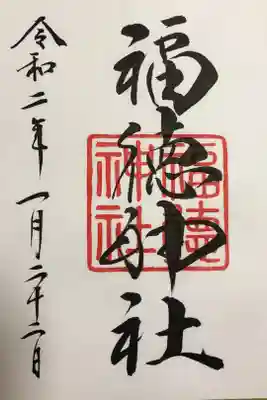 福徳神社
福徳神社
令和二年一月二十二日